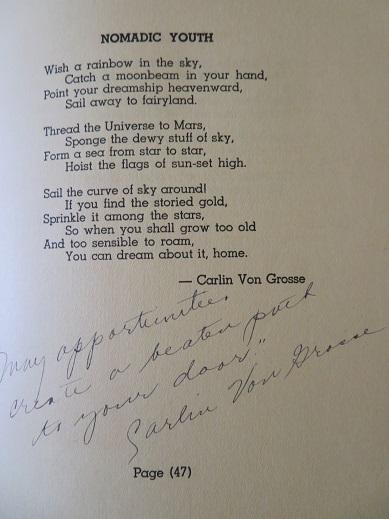 NOMADIC YOUTH
Wish a rainbow in the sky,
Catch a moonbeam in your hand,
Point your dreamship heavenward,
Sail away to fairyland.
Thread the Universe to Mars,
Sponge the dewy stuff of sky,
Form a sea from star to star,
Hoist the flags of sun-set high.
Sail the curve of sky around!
If you find the storied gold,
Sprinkle it among the stars,
So when you shall grow too old
And too sensible to roam,
You can dream about it, home.
— Carlin Von Grosse
May opportunities
create a beaten path
to your door."
Carlin Von Grosse
Page (47)